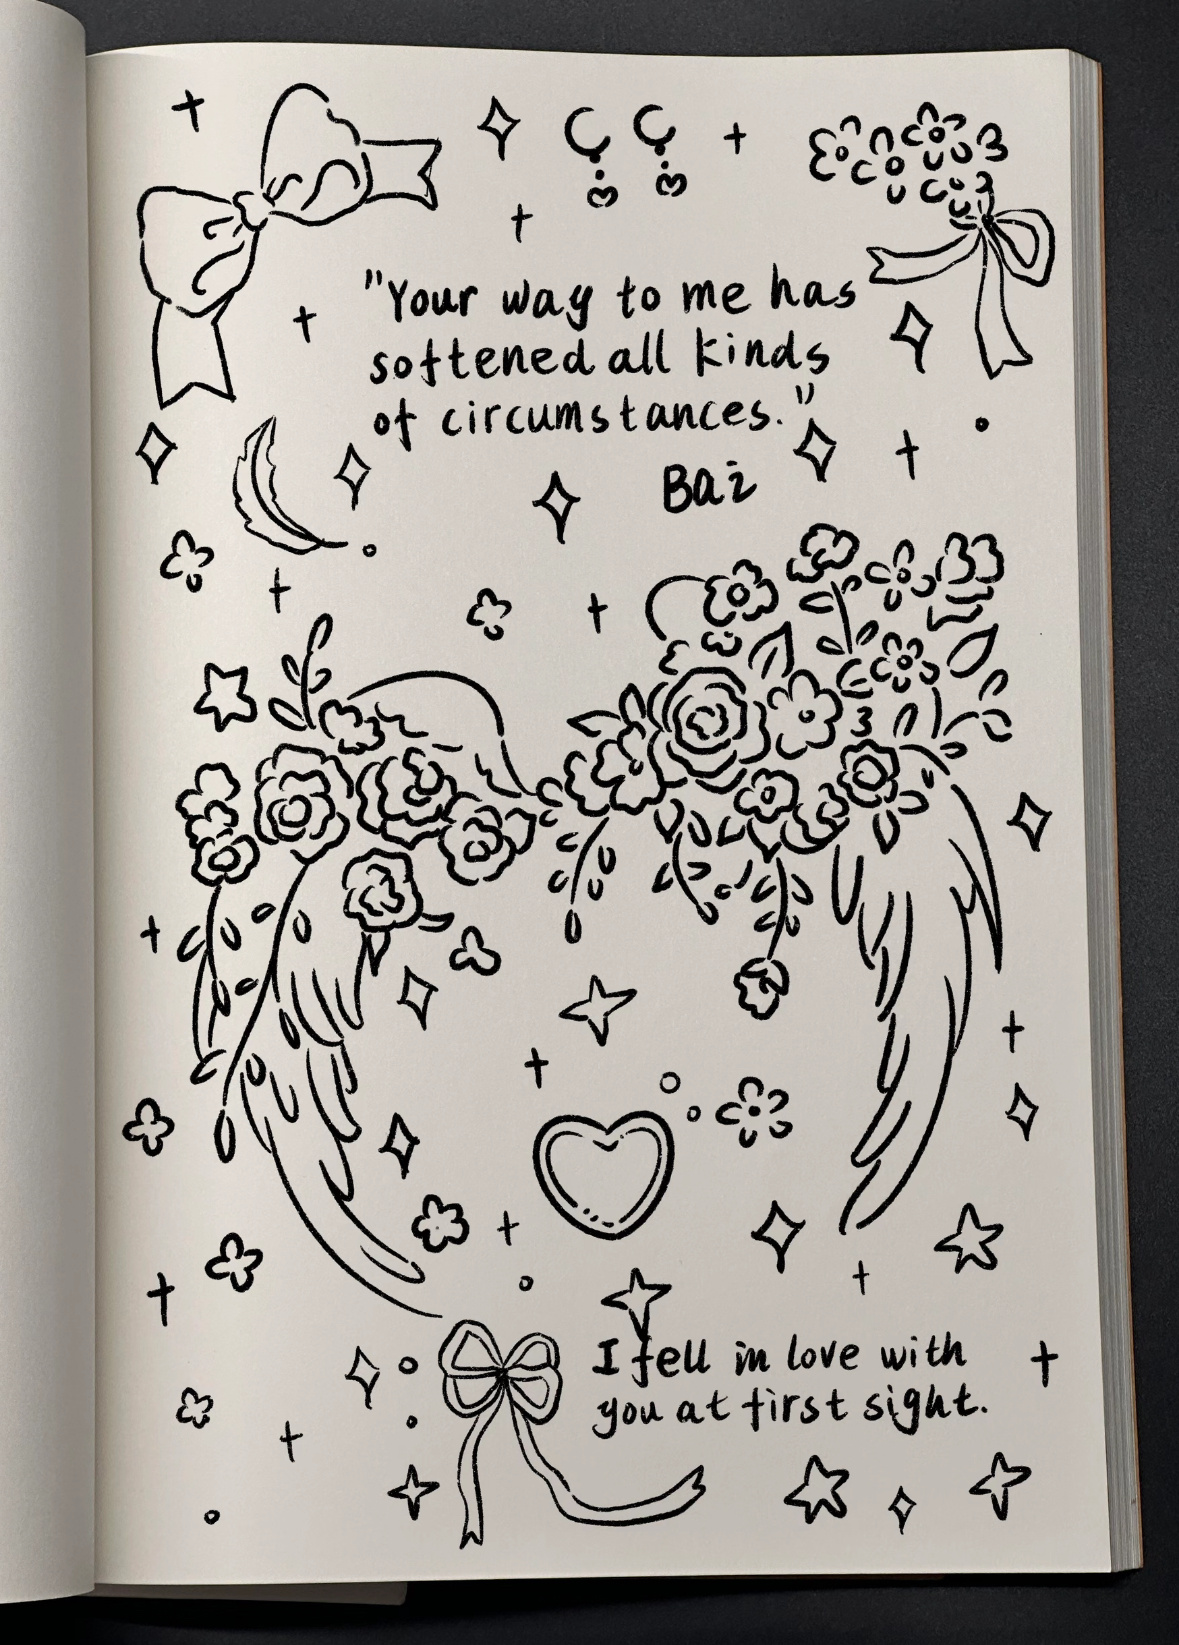 "Your way to me has
softened all kinds
of circumstances."
Bai
I fell in love with
you at first sight.